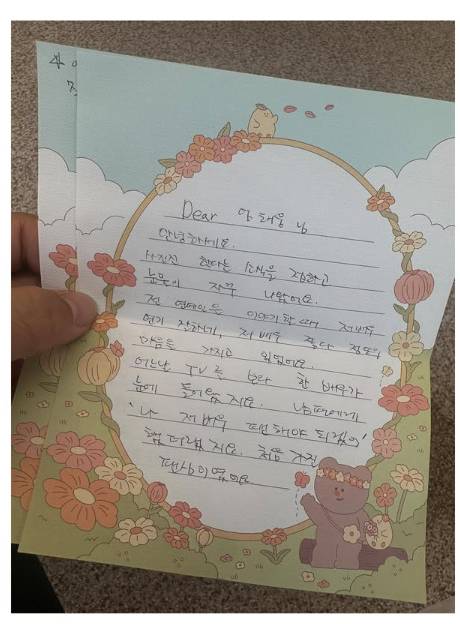 Dear 안 재웅 님
안녕하세요.
사진전 한다는 소식을 접하고
눈물이 자꾸 나왔어요.
전 연예인을 이야기 할때 저 배우
연기 잘하네, 저 배우 잘난 정도의
마음을 가지고 있었어요.
어느날 TV를 보다 한 배우가
눈에 들어왔지요. 남편에게
'나 저 배우 팬 해야 되겠어'
했더랬지요. 처음 가진
팬심이였어요